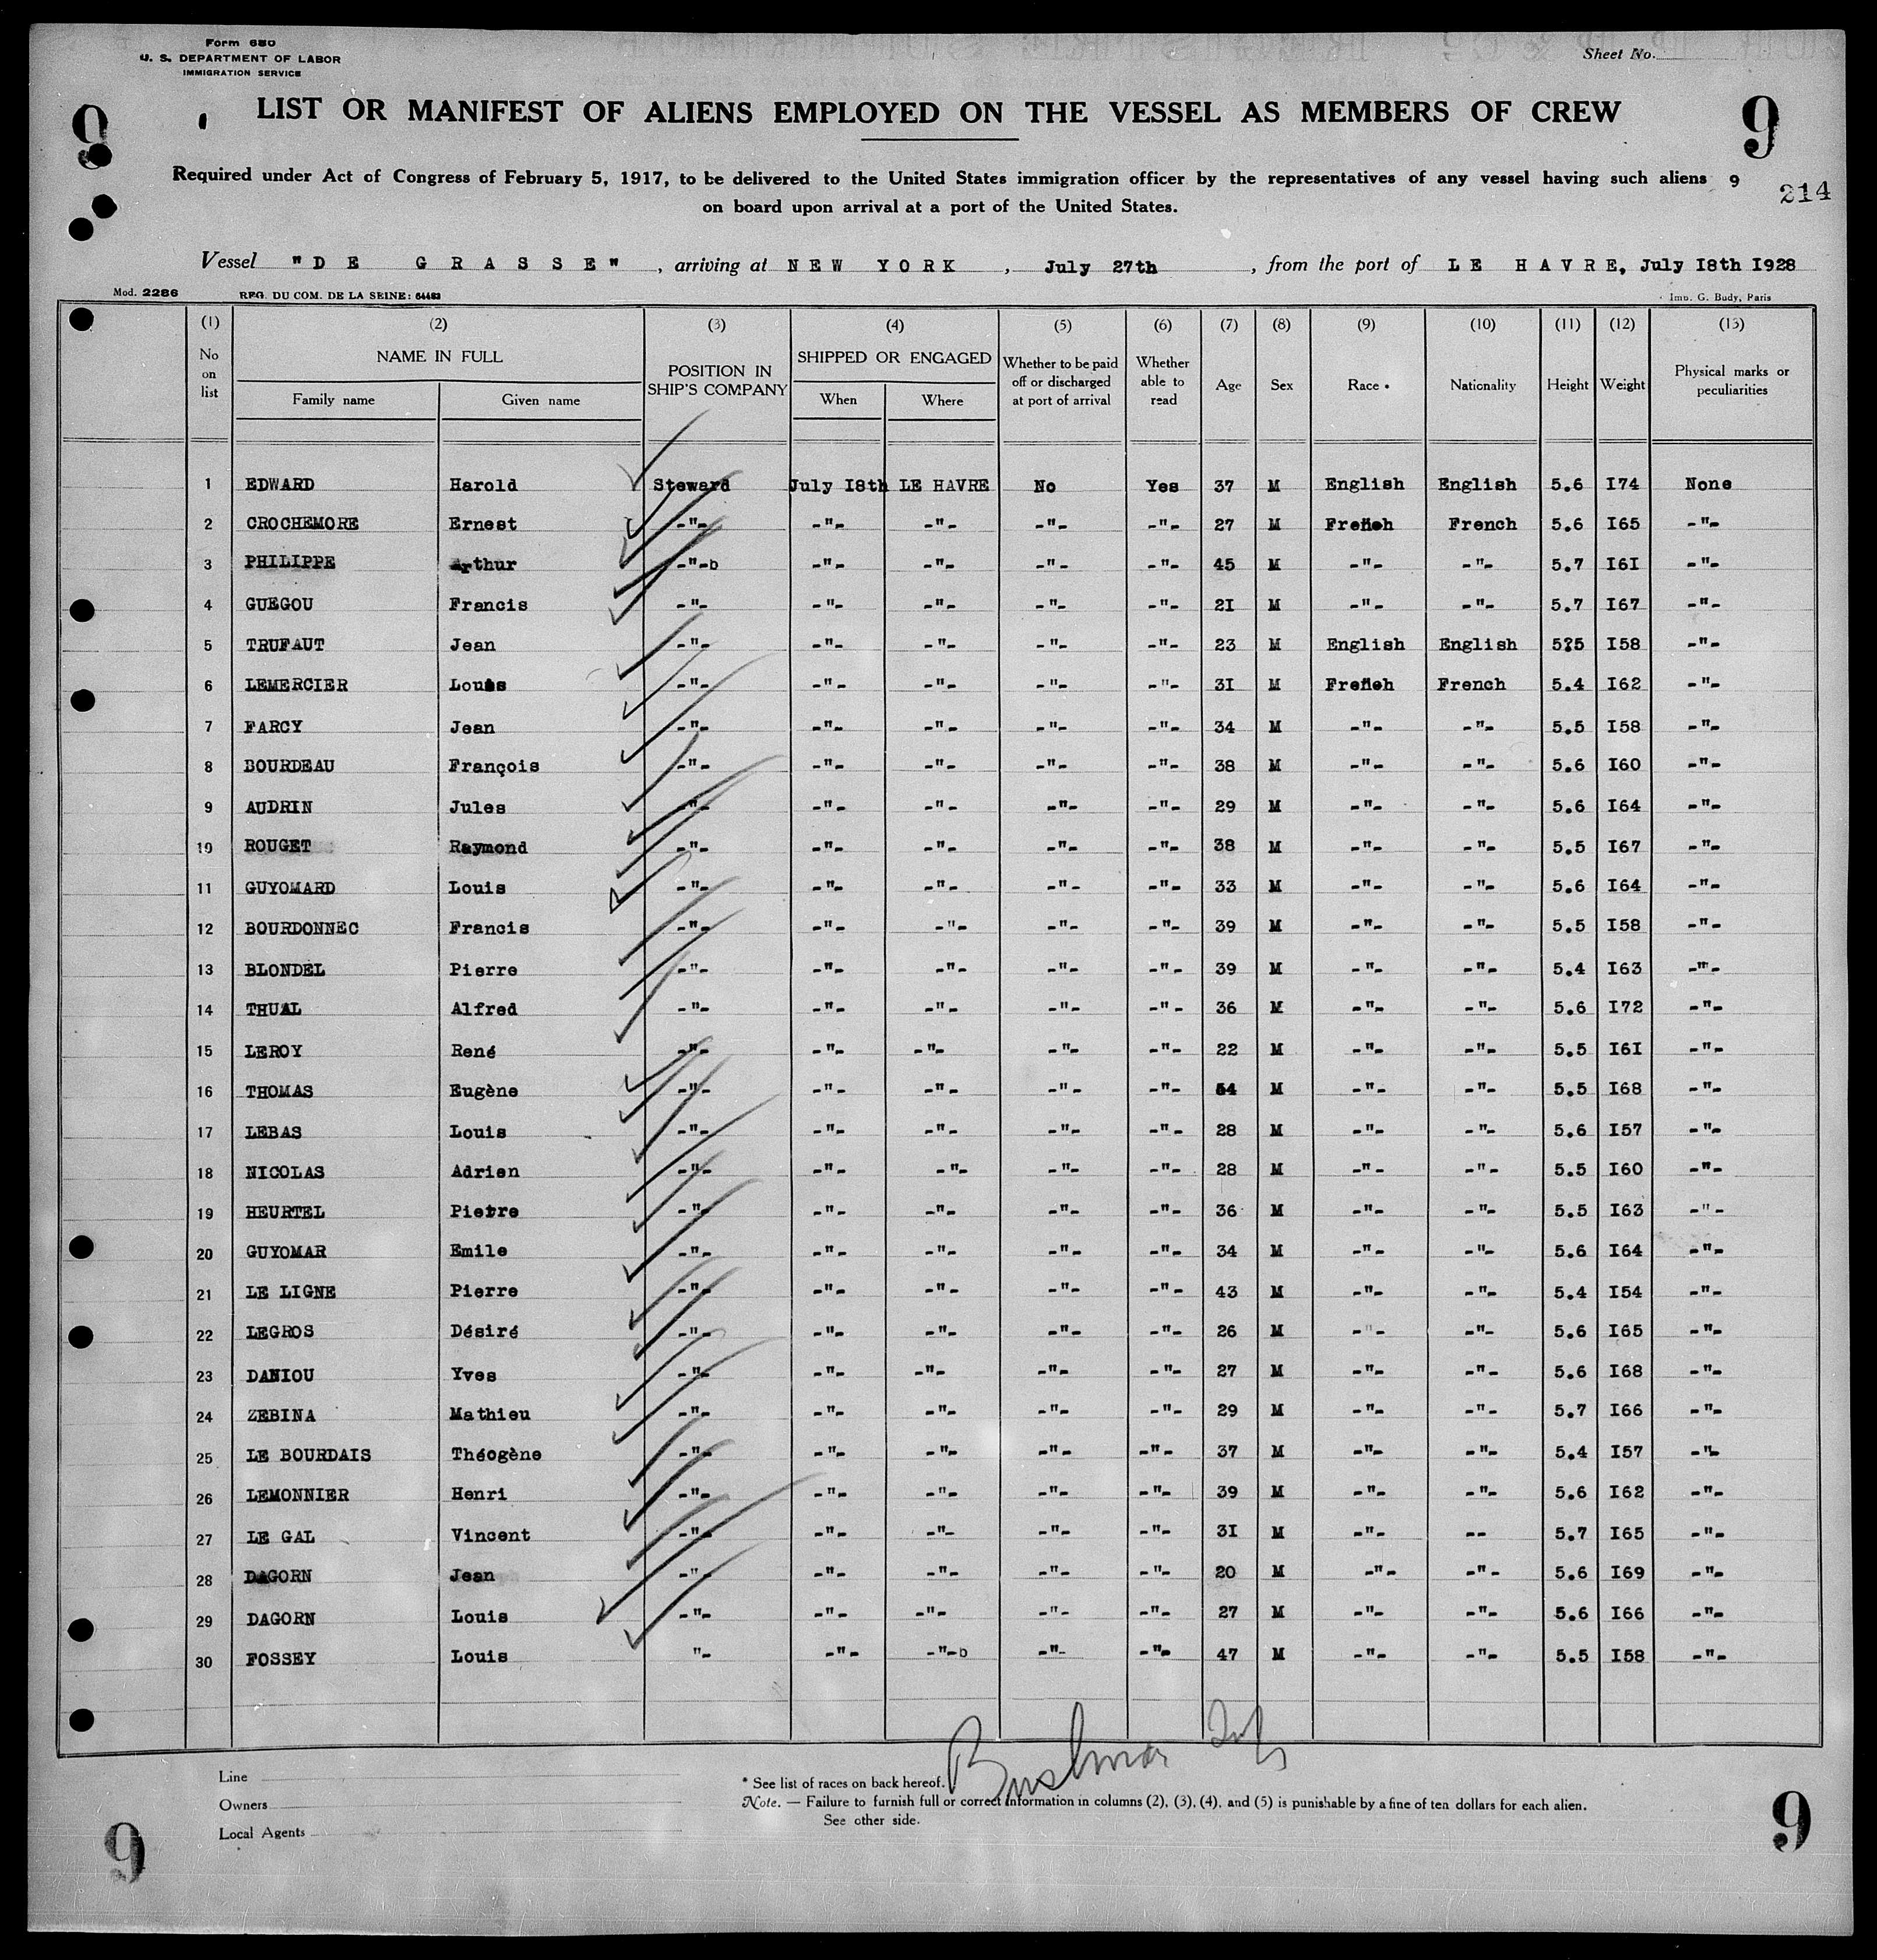 Form 680
U. S. DEPARTMENT OF LABOR
IMMIGRATION SERVICE
Sheet No.
9 9
LIST OR MANIFEST OF ALIENS EMPLOYED ON THE VESSEL AS MEMBERS OF CREW
Required under Act of Congress of February 5, 1917, to be delivered to the United States immigration officer by the representatives of any vessel having such aliens 9
on board upon arrival at a port of the United States.
214
Vessel "DE GRASSE", arriving at NEW YORK, July 27th, from the port of LE HAVRE, July I8th I928
Mod. 2286 REG. DU COM. DE LA SEINE: 64483 Imp. G. Budy, Paris
(1) (2) (3) (4) (5) (6) (7) (8) (9) (10) (11) (12) (13)
No on list NAME IN FULL Family name Given name POSITION IN SHIP'S COMPANY SHIPPED OR ENGAGED When Where Whether to be paid off or discharged at port of arrival Whether able to read Age Sex Race * Nationality Height Weight Physical marks or peculiarities
1 EDWARD Harold Steward July I8th LE HAVRE No Yes 37 M English English 5.6 I74 None
2 CROCHEMORE Ernest -"- -"- -"- -"- -"- 27 M French French 5.6 I65 -"-
3 PHILIPPE Arthur -"-b -"- -"- -"- -"- 45 M -"- -"- 5.7 I6I -"-
4 GUEGOU Francis -"- -"- -"- -"- -"- 2I M -"- -"- 5.7 I67 -"-
5 TRUFAUT Jean -"- -"- -"- -"- -"- 23 M English English 5?5 I58 -"-
6 LEMERCIER Louis -"- -"- -"- -"- -"- 3I M French French 5.4 I62 -"-
7 FARCY Jean -"- -"- -"- -"- -"- 34 M -"- -"- 5.5 I58 -"-
8 BOURDEAU François -"- -"- -"- -"- -"- 38 M -"- -"- 5.6 I60 -"-
9 AUDRIN Jules -"- -"- -"- -"- -"- 29 M -"- -"- 5.6 I64 -"-
10 ROUGET Raymond -"- -"- -"- -"- -"- 38 M -"- -"- 5.5 I67 -"-
11 GUYOMARD Louis -"- -"- -"- -"- -"- 33 M -"- -"- 5.6 I64 -"-
12 BOURDONNEC Francis -"- -"- -"- -"- -"- 39 M -"- -"- 5.5 I58 -"-
13 BLONDEL Pierre -"- -"- -"- -"- -"- 39 M -"- -"- 5.4 I63 -"-
14 THUAL Alfred -"- -"- -"- -"- -"- 36 M -"- -"- 5.6 I72 -"-
15 LEROY René -"- -"- -"- -"- -"- 22 M -"- -"- 5.5 I6I -"-
16 THOMAS Eugène -"- -"- -"- -"- -"- 54 M -"- -"- 5.5 I68 -"-
17 LEBAS Louis -"- -"- -"- -"- -"- 28 M -"- -"- 5.6 I57 -"-
18 NICOLAS Adrien -"- -"- -"- -"- -"- 28 M -"- -"- 5.5 I60 -"-
19 HEURTEL Pierre -"- -"- -"- -"- -"- 36 M -"- -"- 5.5 I63 -"-
20 GUYOMAR Emile -"- -"- -"- -"- -"- 34 M -"- -"- 5.6 I64 -"-
21 LE LIGNE Pierre -"- -"- -"- -"- -"- 43 M -"- -"- 5.4 I54 -"-
22 LEGROS Désiré -"- -"- -"- -"- -"- 26 M -"- -"- 5.6 I65 -"-
23 DANIOU Yves -"- -"- -"- -"- -"- 27 M -"- -"- 5.6 I68 -"-
24 ZEBINA Mathieu -"- -"- -"- -"- -"- 29 M -"- -"- 5.7 I66 -"-
25 LE BOURDAIS Théogène -"- -"- -"- -"- -"- 37 M -"- -"- 5.4 I57 -"-
26 LEMONNIER Henri -"- -"- -"- -"- -"- 39 M -"- -"- 5.6 I62 -"-
27 LE GAL Vincent -"- -"- -"- -"- -"- 3I M -"- -- 5.7 I65 -"-
28 DAGORN Jean -"- -"- -"- -"- -"- 20 M -"- -"- 5.6 I69 -"-
29 DAGORN Louis -"- -"- -"- -"- -"- 27 M -"- -"- 5.6 I66 -"-
30 FOSSEY Louis "- -"- -"-b -"- -"- 47 M -"- -"- 5.5 I58 -"-
Line
Owners
Local Agents
* See list of races on back hereof.
Note. — Failure to furnish full or correct information in columns (2), (3), (4), and (5) is punishable by a fine of ten dollars for each alien.
See other side.
9 9